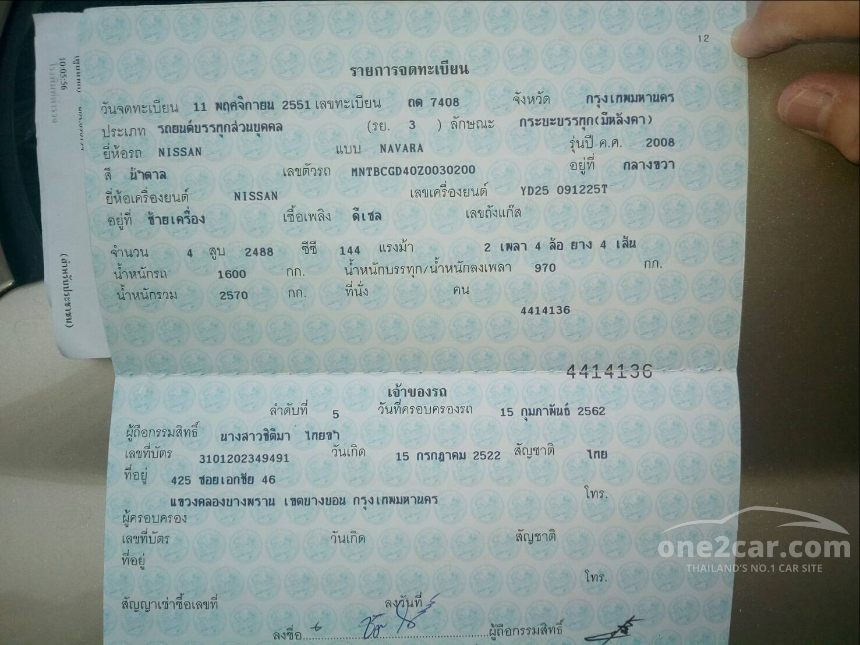 12
รายการจดทะเบียน
วันจดทะเบียน 11 พฤศจิกายน 2551 เลขทะเบียน ถด 7408 จังหวัด กรุงเทพมหานคร
ประเภท รถยนต์บรรทุกส่วนบุคคล (รย. 3 ) ลักษณะ กระบะบรรทุก(มีหลังคา)
ยี่ห้อรถ NISSAN แบบ NAVARA รุ่นปี ค.ศ. 2008
สี น้ำตาล เลขตัวรถ MNTBCGD40Z0030200 อยู่ที่ กลางขวา
ยี่ห้อเครื่องยนต์ NISSAN เลขเครื่องยนต์ YD25 091225T
อยู่ที่ ซ้ายเครื่อง เชื้อเพลิง ดีเซล เลขถังแก๊ส
จำนวน 4 สูบ 2488 ซีซี 144 แรงม้า 2 เพลา 4 ล้อ ยาง 4 เส้น
น้ำหนักรถ 1600 กก. น้ำหนักบรรทุก/น้ำหนักลงเพลา 970 กก.
น้ำหนักรวม 2570 กก. ที่นั่ง คน
4414136
4414136
เจ้าของรถ
ลำดับที่ 5 วันที่ครอบครองรถ 15 กุมภาพันธ์ 2562
ผู้ถือกรรมสิทธิ์ นางสาวชิติมา ไทยขำ
เลขที่บัตร 3101202349491 วันเกิด 15 กรกฎาคม 2522 สัญชาติ ไทย
ที่อยู่ 425 ซอยเอกชัย 46
แขวงคลองบางพราน เขตบางบอน กรุงเทพมหานคร โทร.
ผู้ครอบครอง
เลขที่บัตร วันเกิด สัญชาติ
ที่อยู่
โทร.
สัญญาเช่าซื้อเลขที่ ลงวันที่
ลงชื่อ ผู้ถือกรรมสิทธิ์
one2car.com
THAILAND'S NO.1 CAR SITE
10:05:56
(สำหรับประชาชน)